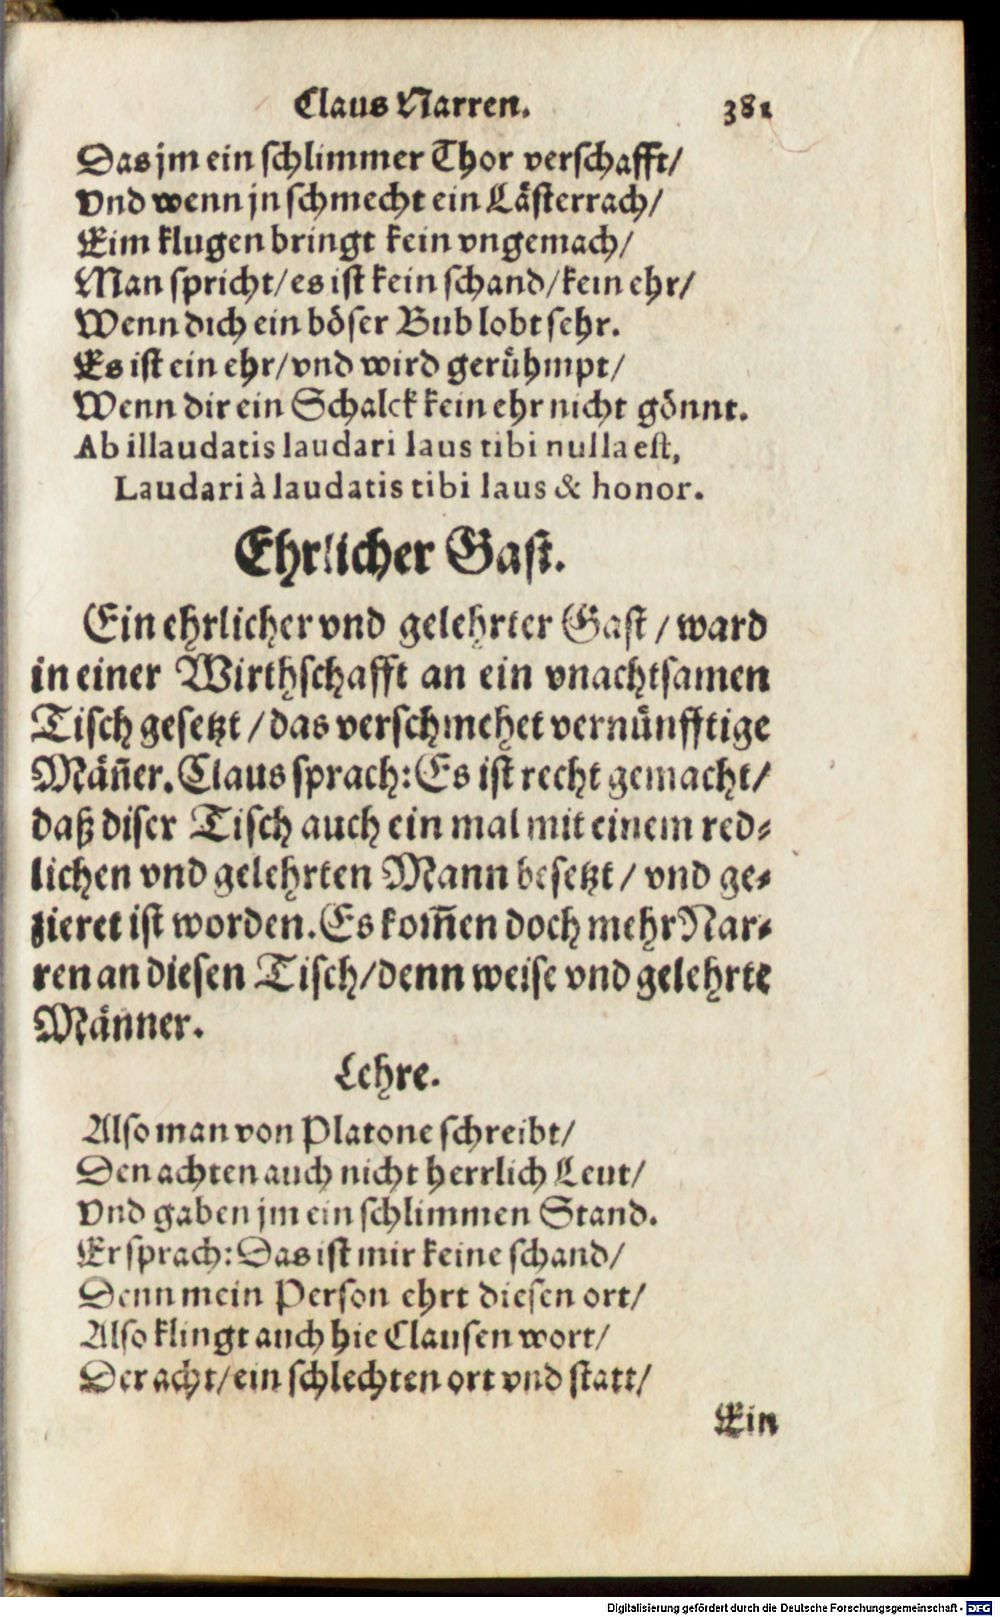 Claus Narren. 381
Das jm ein schlimmer Thor verschafft/
Vnd wenn jn schmecht ein Lästerrach/
Eim klugen bringt kein vngemach/
Man spricht/es ist kein schand/kein ehr/
Wenn dich ein böser Bub lobt sehr.
Es ist ein ehr/vnd wird gerühmpt/
Wenn dir ein Schalck kein ehr nicht gönnt.
Ab illaudatis laudari laus tibi nulla est,
Laudari à laudatis tibi laus & honor.
Ehrlicher Gast.
Ein ehrlicher vnd gelehrter Gast / ward
in einer Wirthschafft an ein vnachtsamen
Tisch gesetzt / das verschmehet vernünfftige
Mäñer. Claus sprach: Es ist recht gemacht/
daß diser Tisch auch ein mal mit einem red⸗
lichen vnd gelehrten Mann besetzt / vnd ge⸗
zieret ist worden. Es kom̃en doch mehr Nar⸗
ren an diesen Tisch/denn weise vnd gelehrte
Männer.
Lehre.
Also man von Platone schreibt/
Den achten auch nicht herrlich Leut/
Vnd gaben jm ein schlimmen Stand.
Er sprach: Das ist mir keine schand/
Denn mein Person ehrt diesen ort/
Also klingt auch hie Clausen wort/
Der acht/ein schlechten ort vnd statt/
Ein
Digitalisierung gefördert durch die Deutsche Forschungsgemeinschaft - DFG